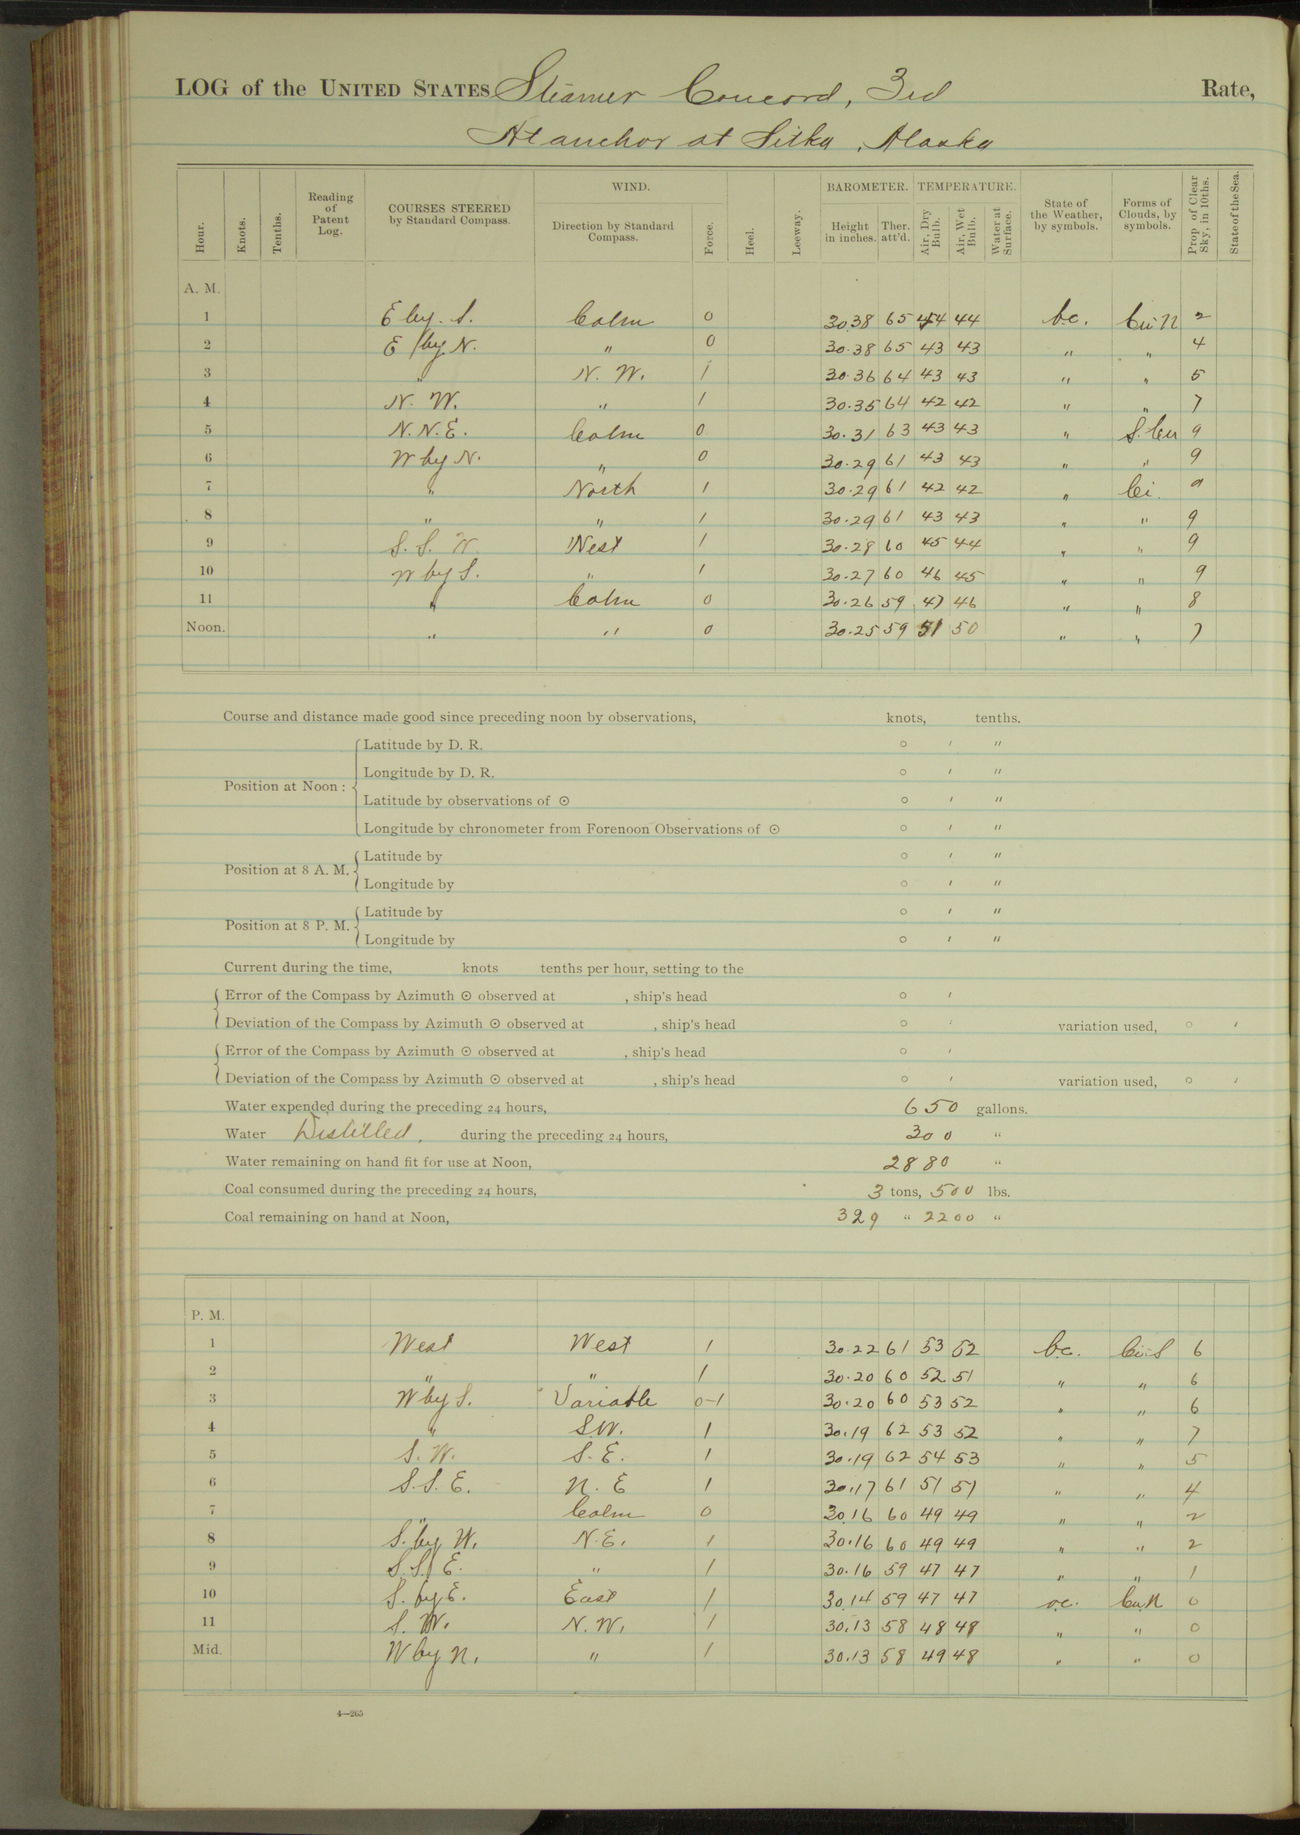 LOG of the UNITED STATES Steamer Concord, 3rd Rate,
At anchor at Sitka, Alaska
Hour. Knots. Tenths. Reading of Patent Log. COURSES STEERED by Standard Compass. WIND. Direction by Standard Compass. Force. Heel. Leeway. BAROMETER. Height in inches. Ther. att'd. TEMPERATURE. Air, Dry Bulb. Air, Wet Bulb. Water at Surface. State of the Weather, by symbols. Forms of Clouds, by symbols. Prop. of Clear Sky, in 10ths. State of the Sea.
A. M.
1 E by. S. Calm 0 30.38 65 44 44 bc. Cu-N 2
2 E by N. " 0 30.38 65 43 43 " " 4
3 " N. W. 1 30.36 64 43 43 " " 5
4 N. W. " 1 30.35 64 42 42 " " 7
5 N. N. E. Calm 0 30.31 63 43 43 " S. Cu 9
6 W by N. " 0 30.29 61 43 43 " " 9
7 " North 1 30.29 61 42 42 " Ci. 9
8 " " 1 30.29 61 43 43 " " 9
9 S. S. W. West 1 30.28 60 45 44 " " 9
10 W by S. " 1 30.27 60 46 45 " " 9
11 " Calm 0 30.26 59 47 46 " " 8
Noon. " " 0 30.25 59 51 50 " " 7
Course and distance made good since preceding noon by observations, knots, tenths.
Position at Noon :
Latitude by D. R. ° ′ ″
Longitude by D. R. ° ′ ″
Latitude by observations of ⊙ ° ′ ″
Longitude by chronometer from Forenoon Observations of ⊙ ° ′ ″
Position at 8 A. M.
Latitude by ° ′ ″
Longitude by ° ′ ″
Position at 8 P. M.
Latitude by ° ′ ″
Longitude by ° ′ ″
Current during the time, knots tenths per hour, setting to the
Error of the Compass by Azimuth ⊙ observed at , ship's head ° ′
Deviation of the Compass by Azimuth ⊙ observed at , ship's head ° ′ variation used, ° ′
Error of the Compass by Azimuth ⊙ observed at , ship's head ° ′
Deviation of the Compass by Azimuth ⊙ observed at , ship's head ° ′ variation used, ° ′
Water expended during the preceding 24 hours, 650 gallons.
Water Distilled, during the preceding 24 hours, 300 "
Water remaining on hand fit for use at Noon, 2880 "
Coal consumed during the preceding 24 hours, 3 tons, 500 lbs.
Coal remaining on hand at Noon, 329 " 2200 "
P. M.
1 West West 1 30.22 61 53 52 bc. Ci-S 6
2 " " 1 30.20 60 52 51 " " 6
3 W by S. Variable 0-1 30.20 60 53 52 " " 6
4 " S.W. 1 30.19 62 53 52 " " 7
5 S. W. S. E. 1 30.19 62 54 53 " " 5
6 S. S. E. N. E 1 30.17 61 51 51 " " 4
7 " Calm 0 30.16 60 49 49 " " 2
8 S. by W. N. E. 1 30.16 60 49 49 " " 2
9 S. S. E. " 1 30.16 59 47 47 " " 1
10 S. by E. East 1 30.14 59 47 47 oc. Cu.N 0
11 S. W. N. W. 1 30.13 58 48 48 " " 0
Mid. W by N. " 1 30.13 58 49 48 " " 0
4—265